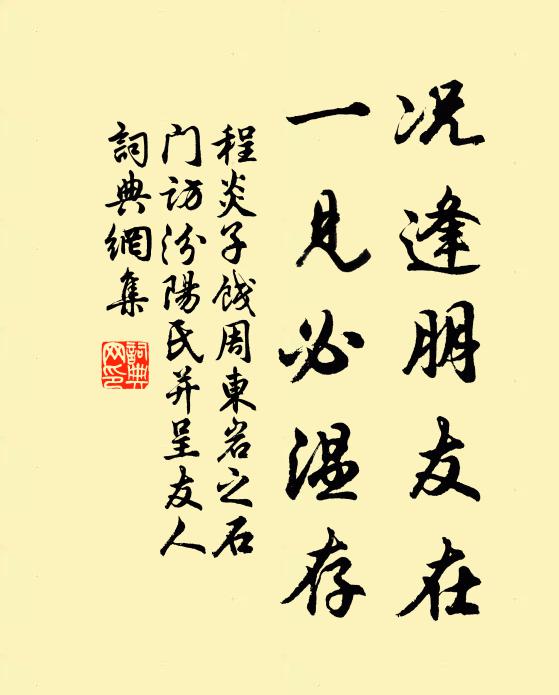 况逢朋友在
一見必温存
程炎子餞周東岩之石
门访汾陽民并呈友人
詞典網集
詞典网印